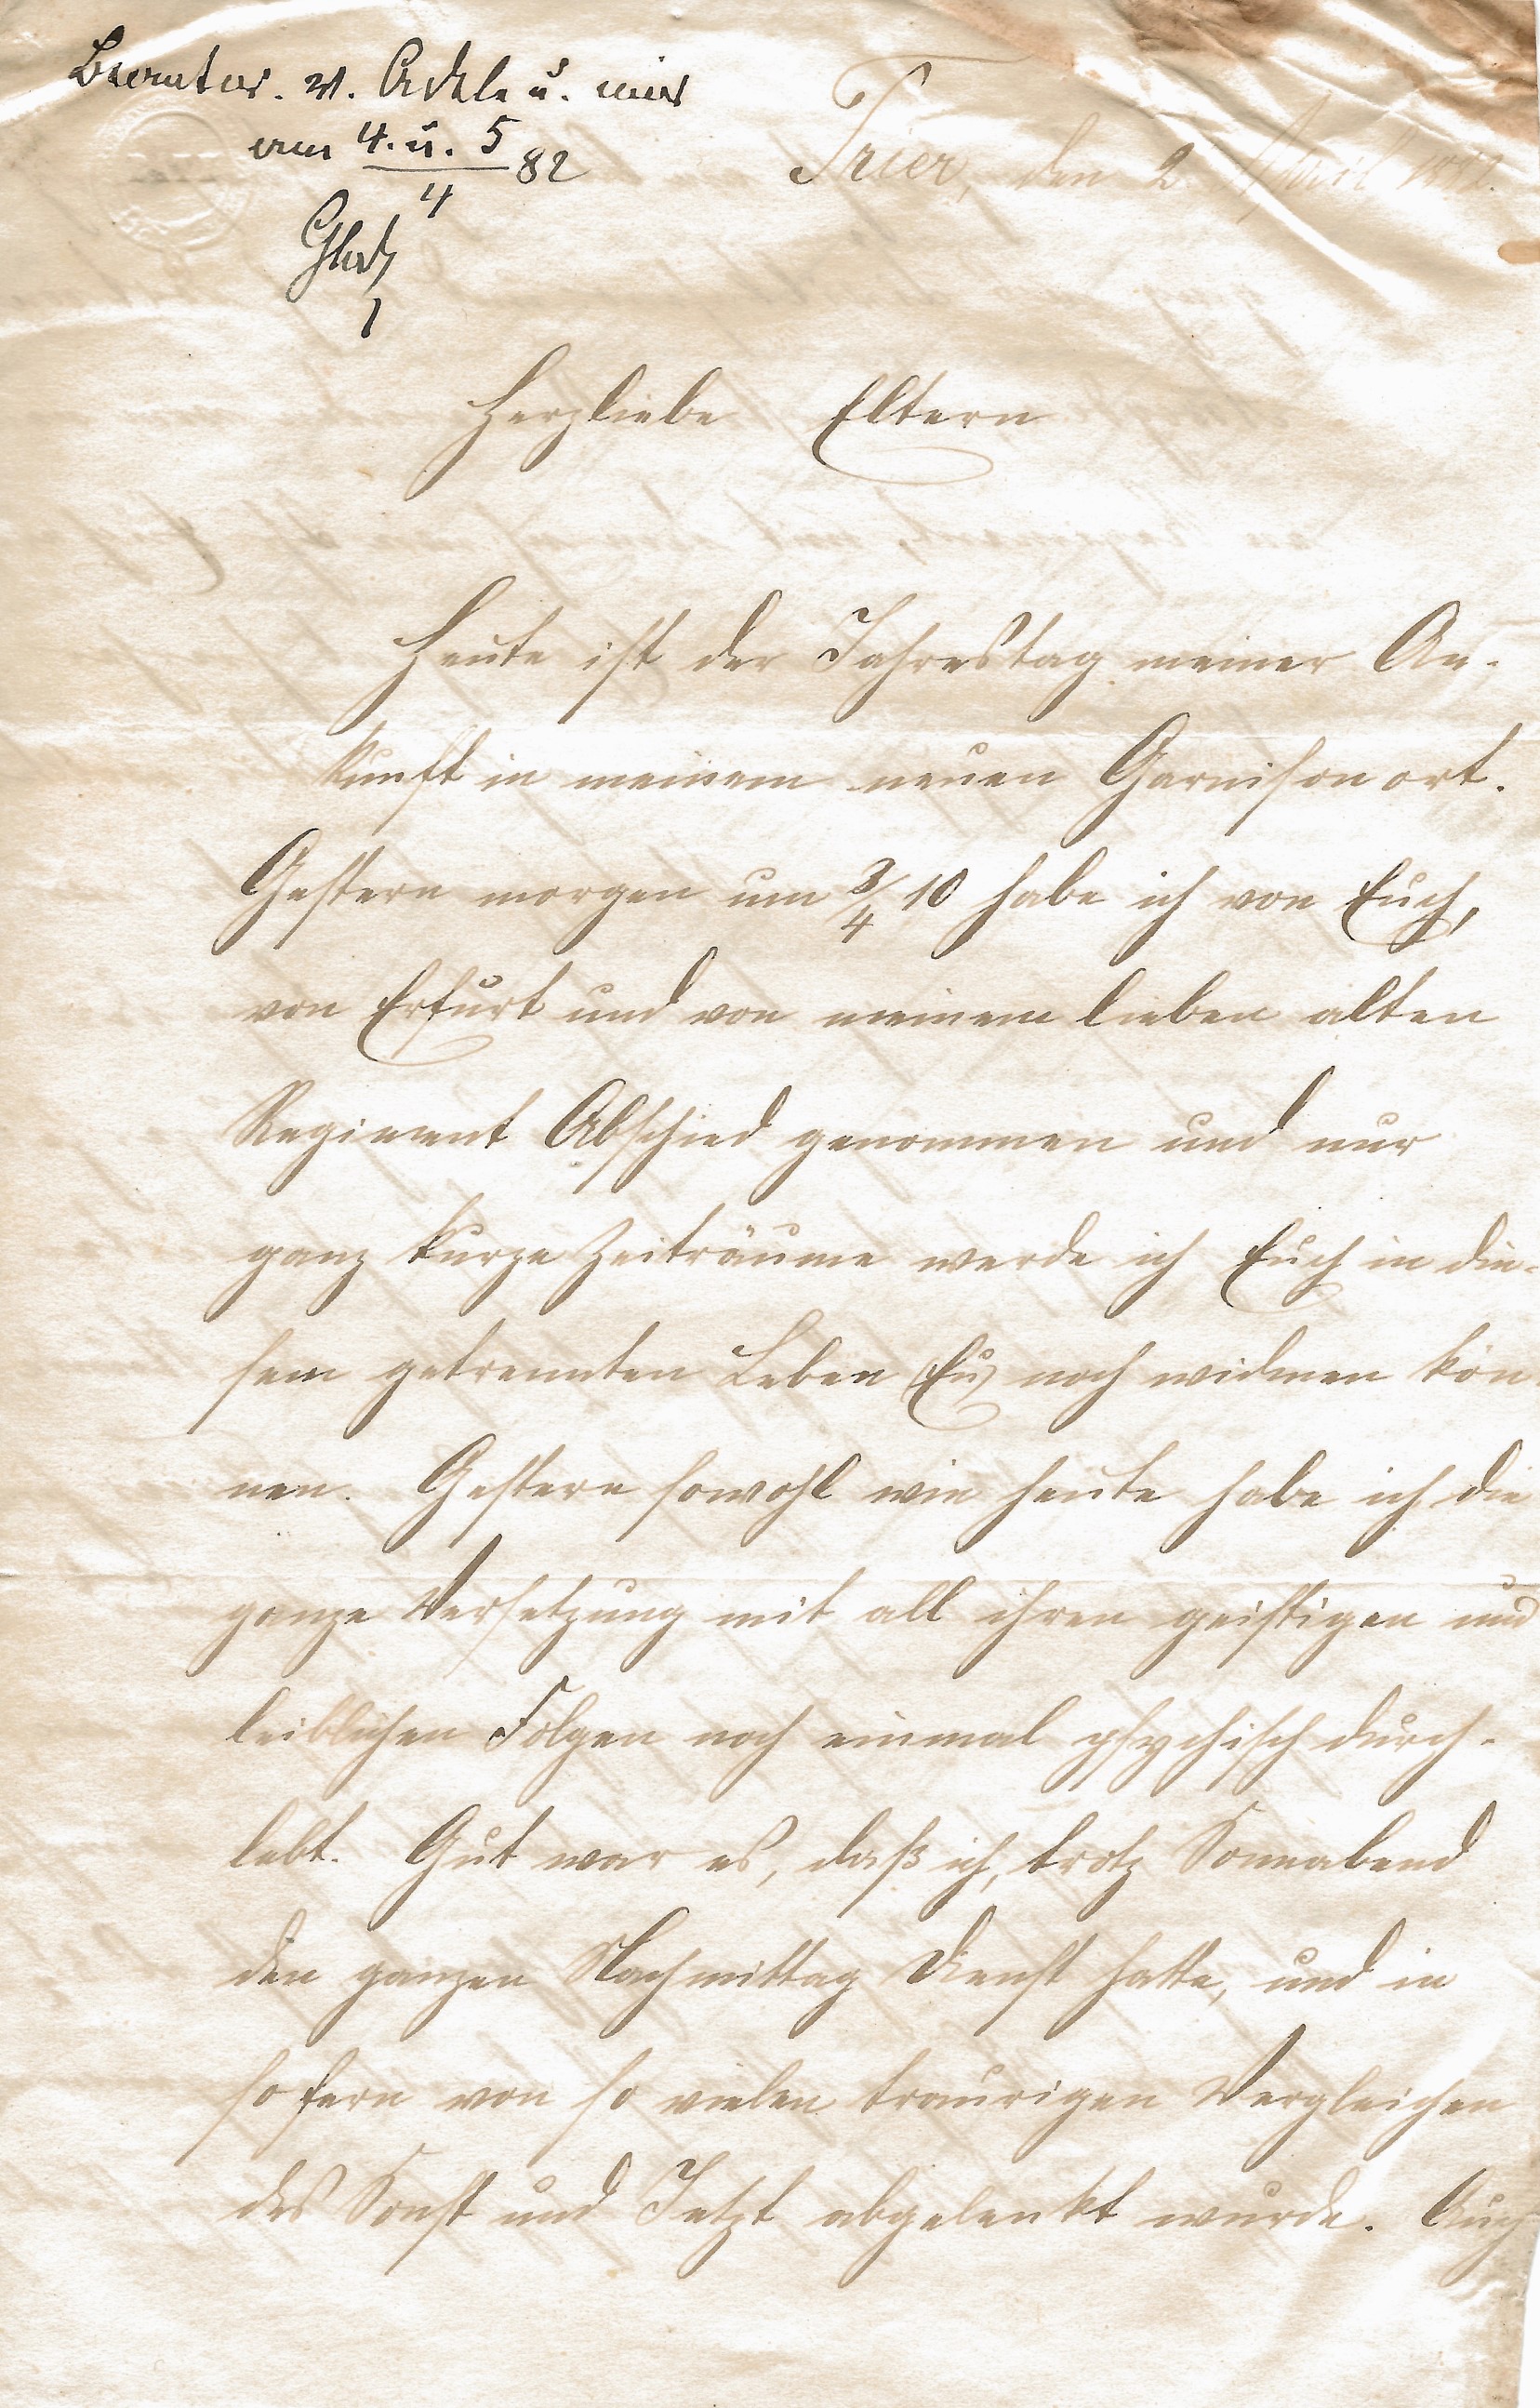 Beantw. v. Adele u. mir
vom 4. u. 5
4 82
Trier, den 2 April 1882.
Herzliebe Eltern
Heute ist der Jahrestag meiner An-
kunft in meinem neuen Garnisonort.
Gestern morgen um 3/4 10 habe ich von Euch,
von Erfurt und von meinem lieben alten
Regiment Abschied genommen und nur
ganz kurze Zeiträume werde ich Euch in die-
sem getrennten Leben Eu noch widmen kön
nen. Gestern sowohl wie heute habe ich die
ganze Versetzung mit all ihren geistigen und
leiblichen Folgen noch einmal psychisch durch-
lebt. Gut war es, daß ich, trotz Sonnabend
den ganzen Nachmittag Dienst hatte, und in
so fern von so vielen traurigen Vergleichen
des Sonst und Jetzt abgelenkt wurde. Auch